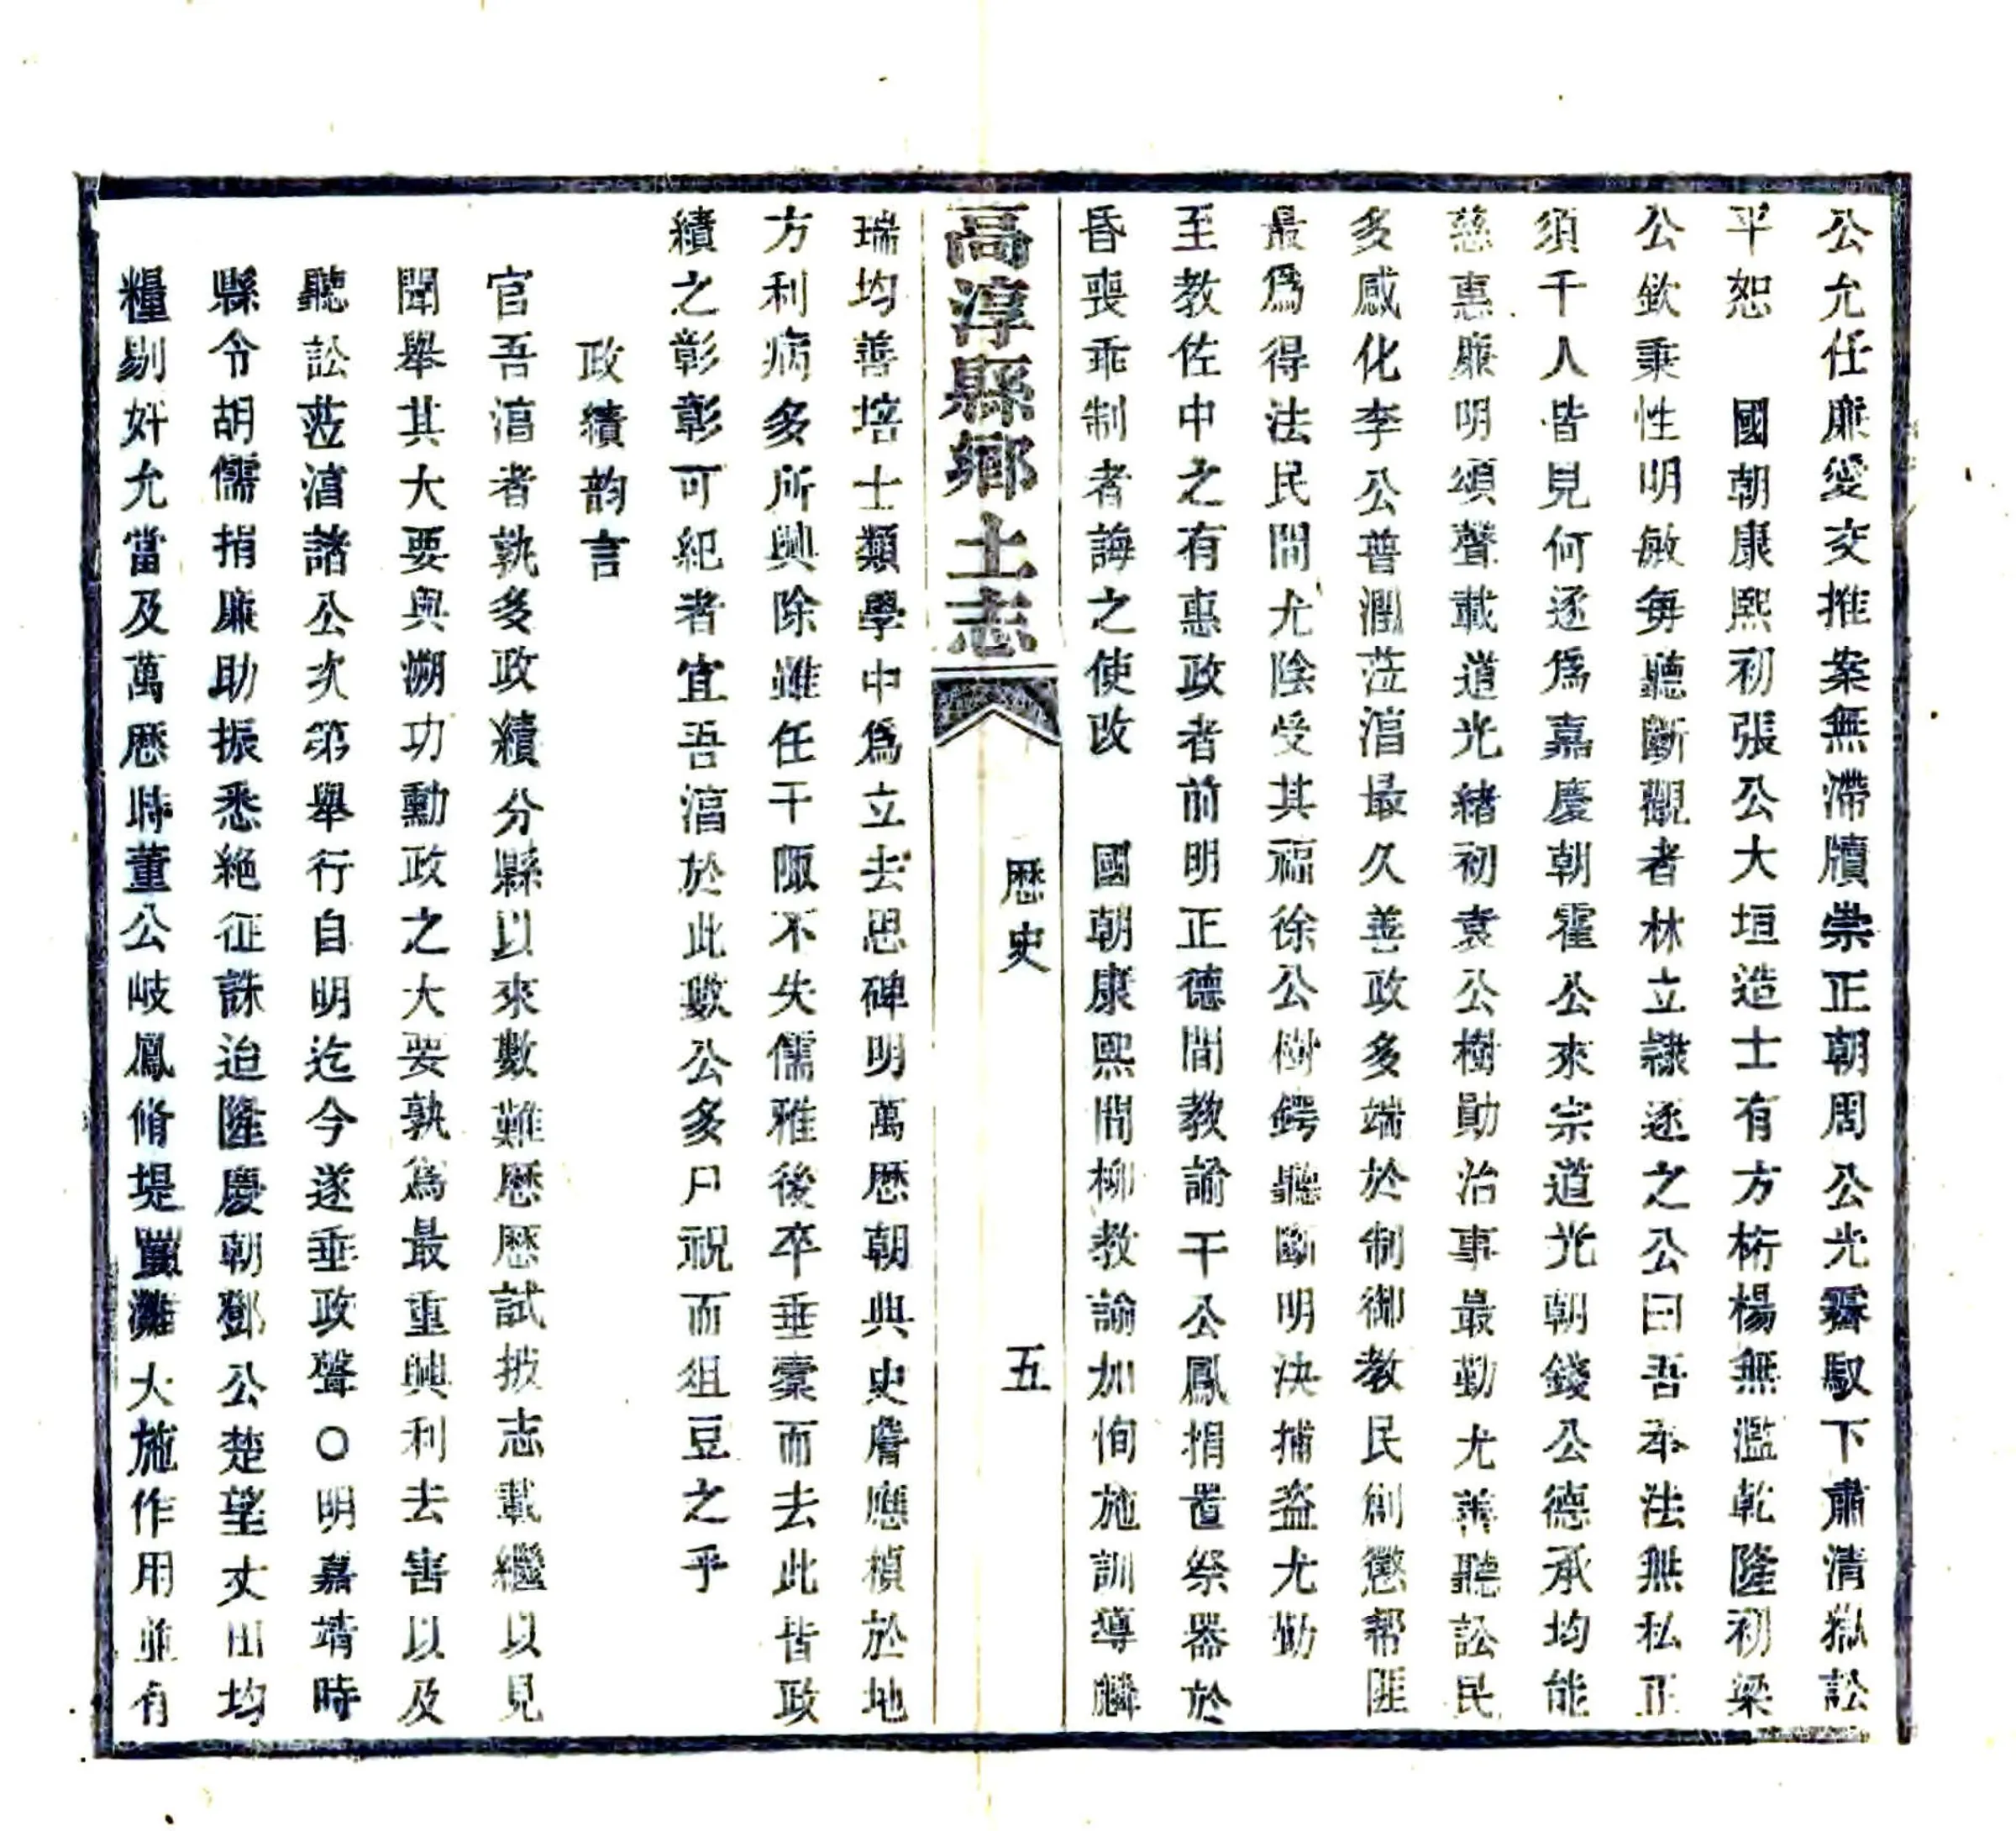 公允任廉愛交推案無滯牘崇正朝周公光霽馭下肅清獄訟
平恕　國朝康熙初張公大垣造士有方桁楊無濫乾隆初梁
公欽秉性明敏每聽斷觀者林立隸逐之公曰吾奉法無私正
須千人皆見何逐爲嘉慶朝霍公來宗道光朝錢公德承均能
慈惠廉明頌聲載道光緒初袁公樹勛治事最勤尤善聽訟民
多感化李公普潤蒞湻最久善政多端於制御教民創懲帮匪
最爲得法民間尤陰受其福徐公樹鍔聽斷明決捕盜尤勤
至教佐中之有惠政者前明正德間教諭干公鳳捐置祭器於
昏喪乖制者誨之使改　國朝康熙間柳教諭加恂施訓導麟
高淳縣鄉土志　歷史　五
瑞均善培士類學中爲立去思碑明萬歷朝典史詹應楨於地
方利病多所興除雖任干陬不失儒雅後卒垂橐而去此皆政
績之彰彰可紀者宜吾湻於此數公多尸祝而俎豆之乎
政績韵言
官吾湻者孰多政績分縣以來數難歷歷試披志載繼以見
聞舉其大要與溯功勳政之大要孰爲最重興利去害以及
聽訟蒞湻諸公次第舉行自明迄今遂垂政聲○明嘉靖時
縣令胡儒捐廉助振悉絕征誅迨隆慶朝鄧公楚望丈田均
糧剔奸允當及萬歷時董公岐鳳脩堤置灘大施作用並有